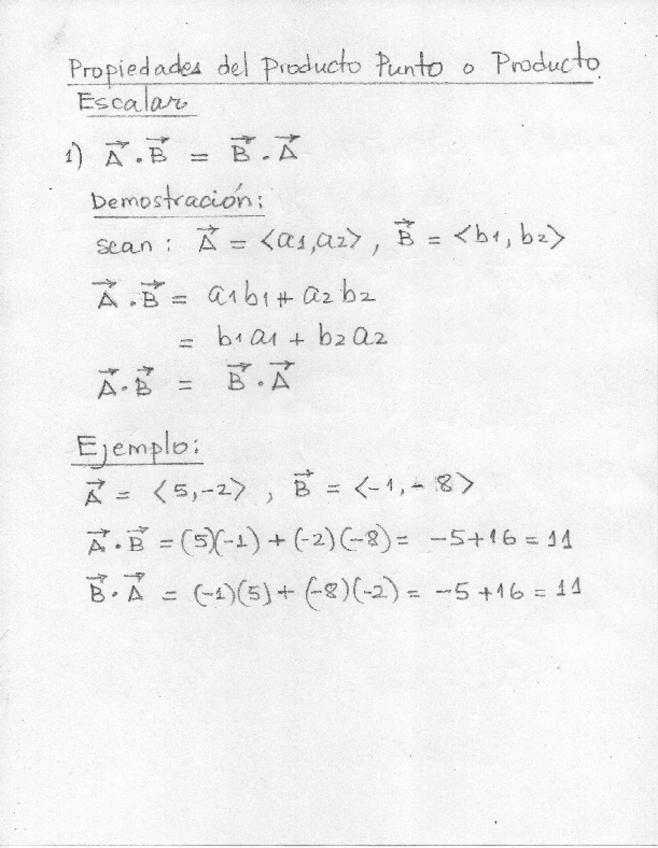 Propiedades del Producto Punto o Producto
Escalar
1) A⃗ . B⃗ = B⃗ . A⃗
Demostración:
sean : A⃗ = <a1, a2> , B⃗ = <b1, b2>
A⃗ . B⃗ = a1b1 + a2b2
= b1a1 + b2a2
A⃗ . B⃗ = B⃗ . A⃗
Ejemplo:
A⃗ = <5, -2> , B⃗ = <-1, -8>
A⃗ . B⃗ = (5)(-1) + (-2)(-8) = -5+16 = 11
B⃗ . A⃗ = (-1)(5) + (-8)(-2) = -5+16 = 11